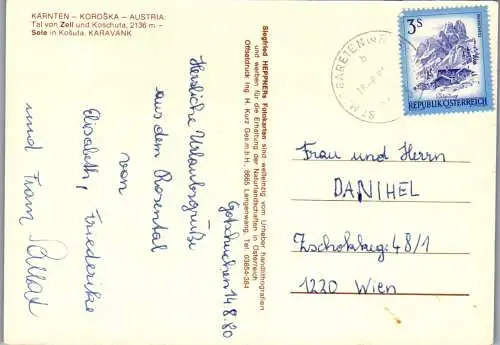 KÄRNTEN – KOROŠKA – AUSTRIA:
Tal von Zell und Koschuta, 2136 m –
Sele in Košuta, KARAVANK
Gotschuchen 14.8.80
Herzliche Urlaubsgrüße
aus dem Rosental
von
Elisabeth, Friederike
und Fram
Siegfried HEPPNERs Fotokarten sind weltenzig vom Urheber handlithografien
und werben für die Erhaltung der Naturlandschaften in Österreich
Offsetdruck Ing. H. Kurz Ges.m.b.H., 8665 Langenwang, Tel. 03854-384
3S
REPUBLIK ÖSTERREICH
Frau und Herrn
DANIHEL
Zschokkeg. 48/1
1220 Wien